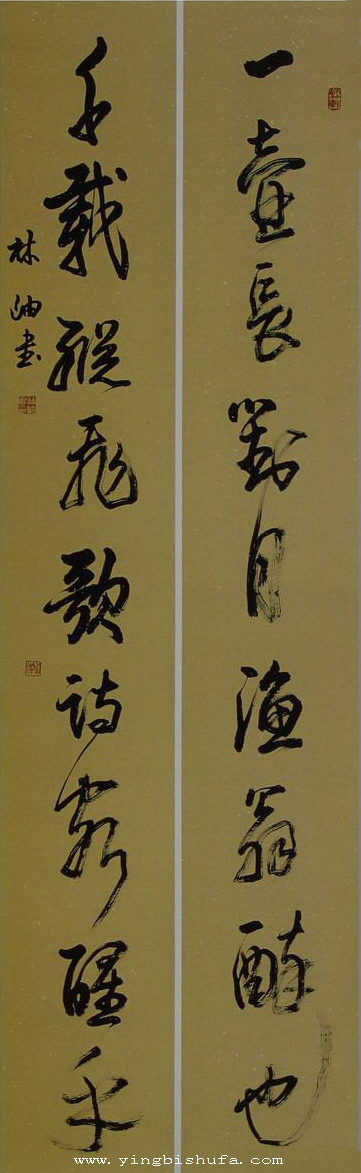 一壺長對月漁翁醉也
千載縱飛歌詩客醒乎
林油書
www.yingbishufa.com